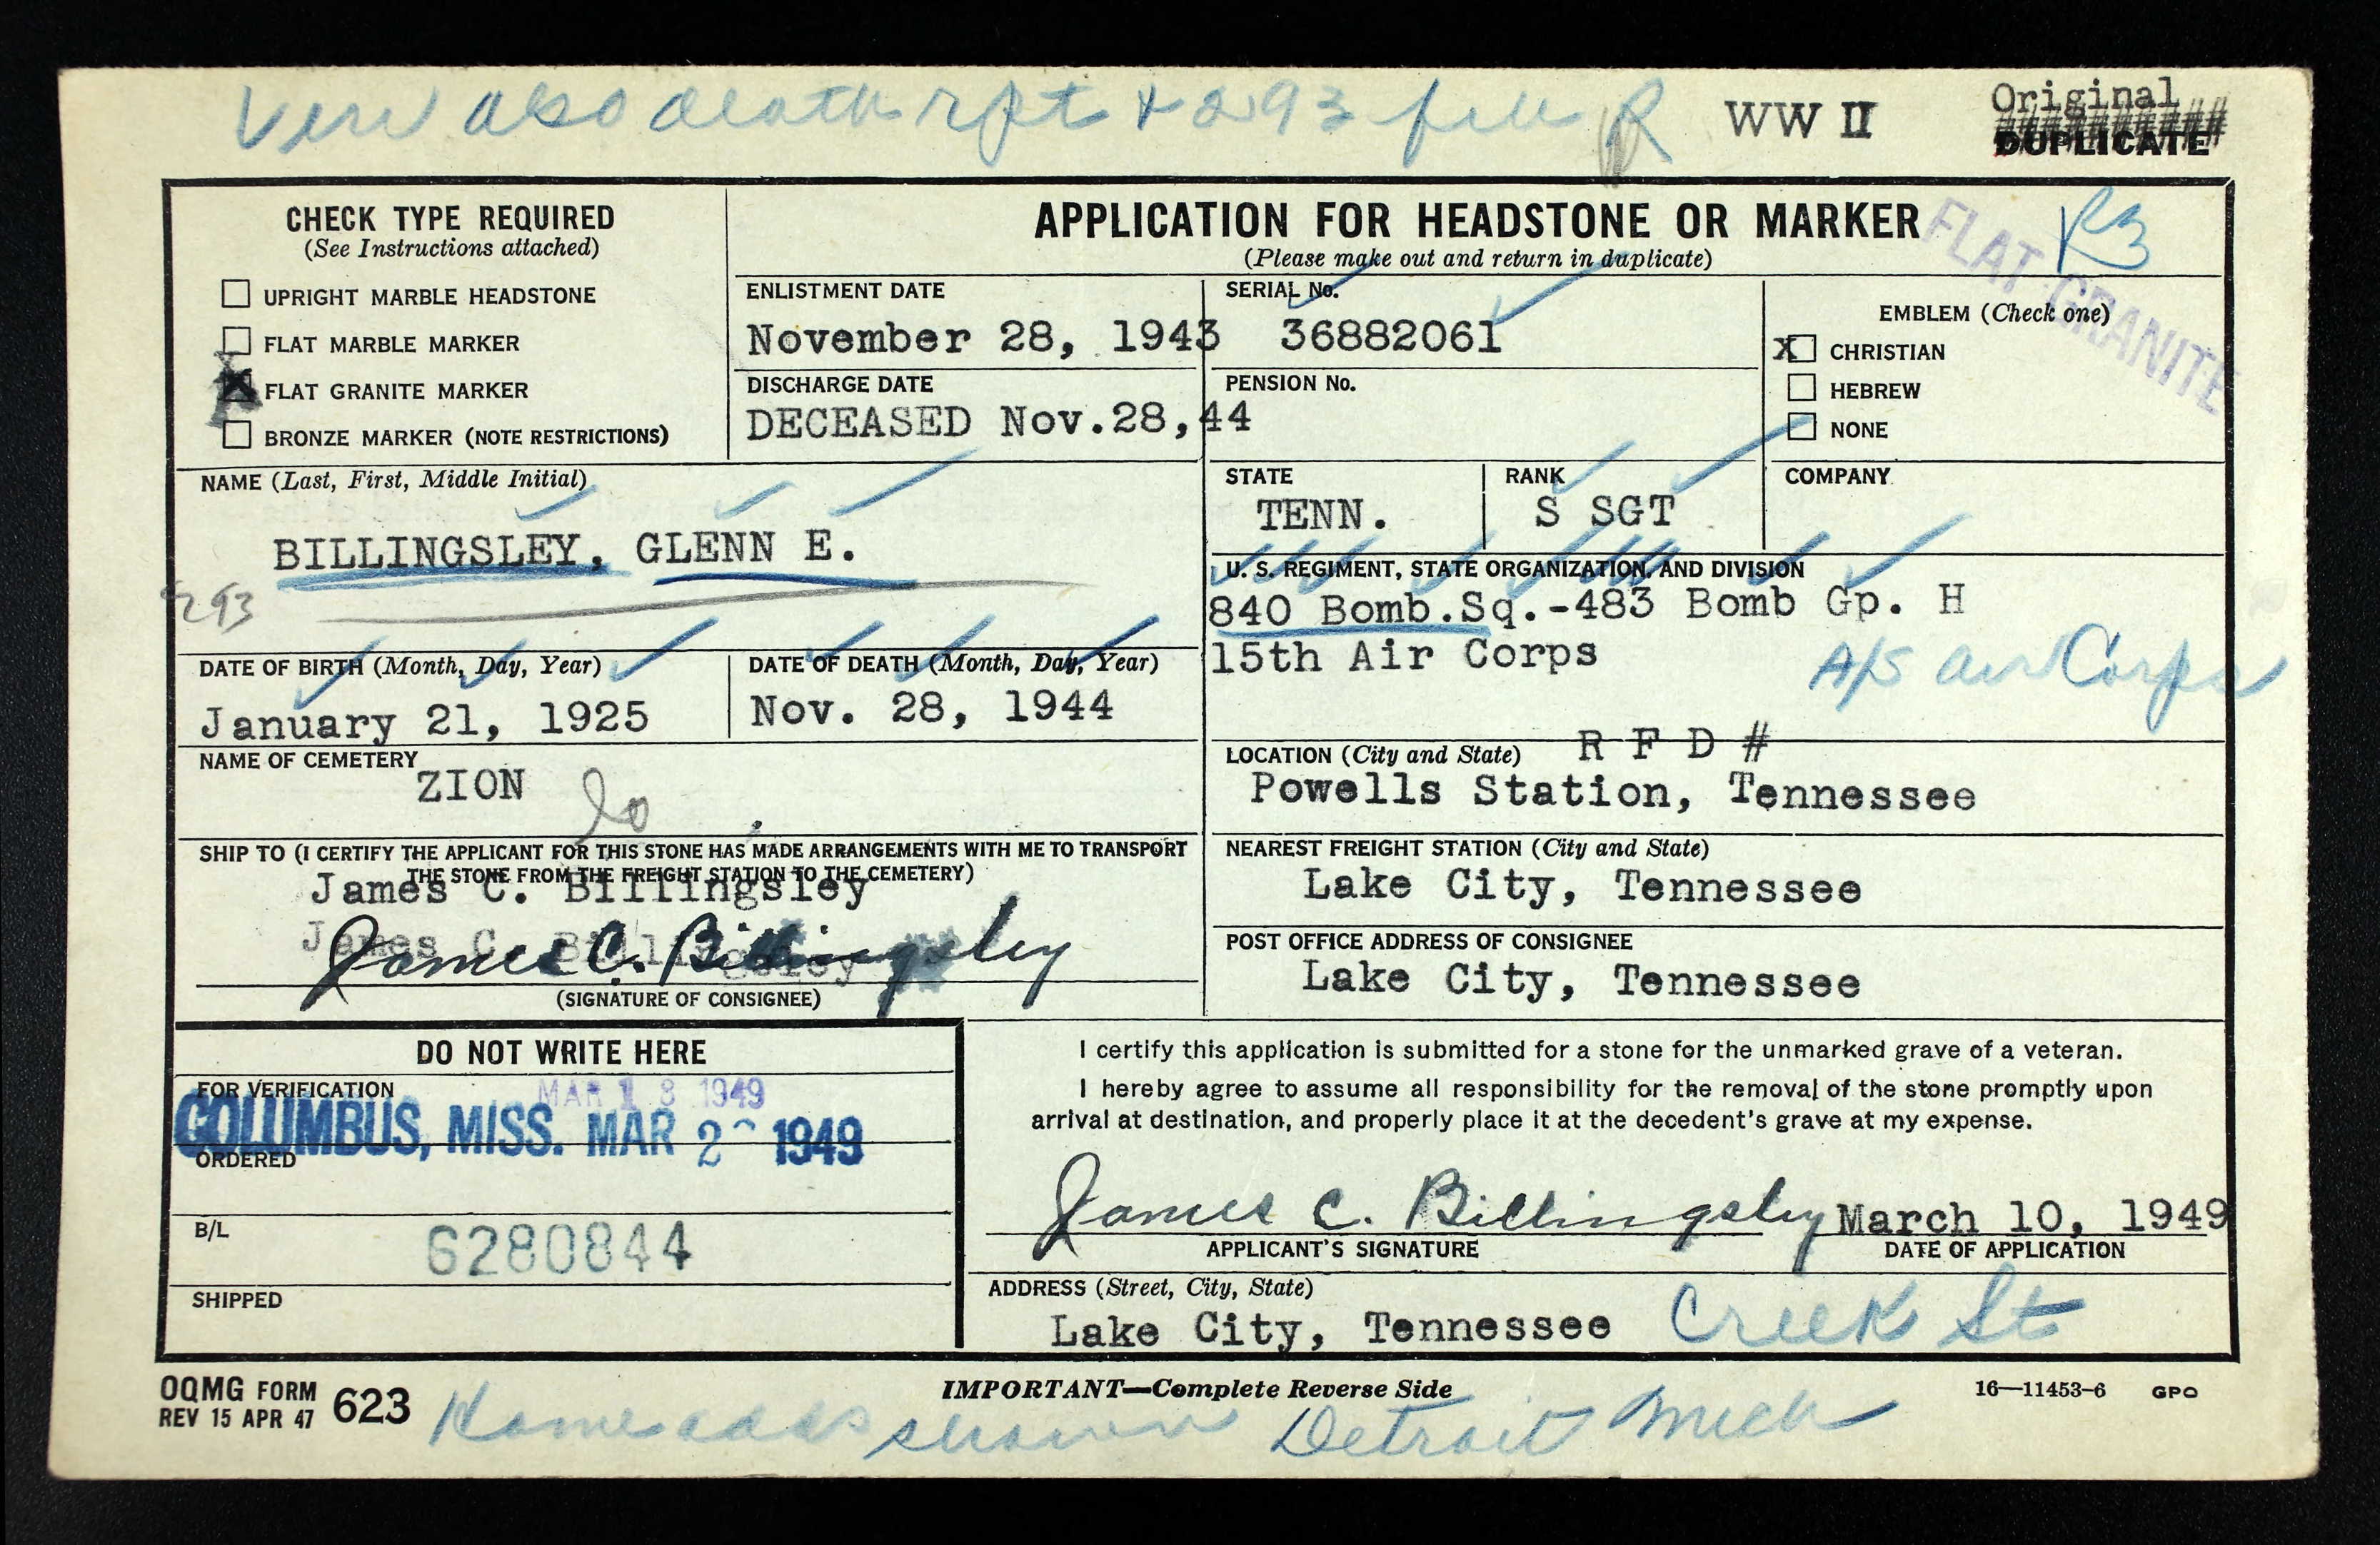 Veri also death rpt + 293 file R WW II Original
##########
DUPLICATE
CHECK TYPE REQUIRED
(See Instructions attached)
UPRIGHT MARBLE HEADSTONE
FLAT MARBLE MARKER
X FLAT GRANITE MARKER
BRONZE MARKER (NOTE RESTRICTIONS)
APPLICATION FOR HEADSTONE OR MARKER
(Please make out and return in duplicate)
FLAT GRANITE
R3
ENLISTMENT DATE
November 28, 1943
SERIAL No.
36882061
DISCHARGE DATE
DECEASED Nov.28,44
PENSION No.
EMBLEM (Check one)
X CHRISTIAN
HEBREW
NONE
NAME (Last, First, Middle Initial)
BILLINGSLEY, GLENN E.
293
STATE
TENN.
RANK
S SGT
COMPANY
U. S. REGIMENT, STATE ORGANIZATION, AND DIVISION
840 Bomb.Sq.-483 Bomb Gp. H
15th Air Corps
A/S Air Corps
DATE OF BIRTH (Month, Day, Year)
January 21, 1925
DATE OF DEATH (Month, Day, Year)
Nov. 28, 1944
NAME OF CEMETERY
ZION
LOCATION (City and State) R F D #
Powells Station, Tennessee
SHIP TO (I CERTIFY THE APPLICANT FOR THIS STONE HAS MADE ARRANGEMENTS WITH ME TO TRANSPORT
THE STONE FROM THE FREIGHT STATION TO THE CEMETERY)
James C. Billingsley
James C. Billingsley
James C. Billingsley
(SIGNATURE OF CONSIGNEE)
NEAREST FREIGHT STATION (City and State)
Lake City, Tennessee
POST OFFICE ADDRESS OF CONSIGNEE
Lake City, Tennessee
DO NOT WRITE HERE
FOR VERIFICATION
MAR 18 1949
COLUMBUS, MISS. MAR 2 1949
ORDERED
B/L
6280844
SHIPPED
I certify this application is submitted for a stone for the unmarked grave of a veteran.
I hereby agree to assume all responsibility for the removal of the stone promptly upon
arrival at destination, and properly place it at the decedent's grave at my expense.
James C. Billingsley March 10, 1949
APPLICANT'S SIGNATURE DATE OF APPLICATION
ADDRESS (Street, City, State)
Lake City, Tennessee Creek St
OQMG FORM 623
REV 15 APR 47
IMPORTANT—Complete Reverse Side
16—11453-6 GPO
Home adds shown Detroit Mich